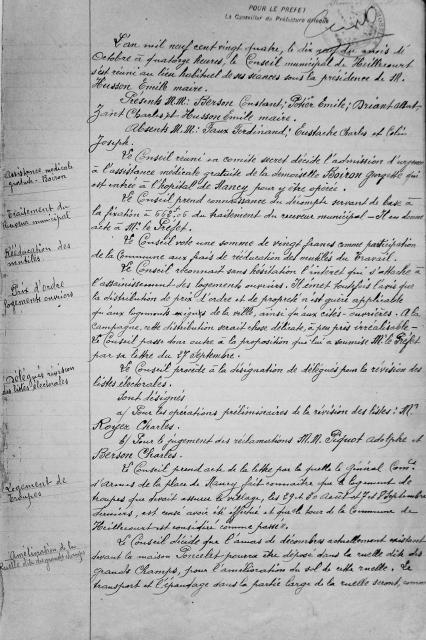 POUR LE PREFET
Le Conseiller de Préfecture délégué
L'an mil neuf cent vingt quatre, le dix neuf du mois de
Octobre à quatorze heures, le Conseil municipal de Heillecourt
s'est réuni au lieu habituel de ses séances sous la présidence de M.
Husson Emile maire.
Présents M.M: Berson Constant; Potier Emile; Briant
Zant Charles et Husson Emile maire.
Absents M.M: Faux Ferdinand; Eustache Charles et Colin
Joseph.
Assistance médicale
gratuite - Boiron
Le Conseil réuni en comité secret décide l'admission d'urgence
à l'assistance médicale gratuite de la demoiselle Boiron Georgette qui
est entrée à l'hôpital de Nancy pour y être opérée.
Traitement du
Receveur municipal
Le Conseil prend connaissance du décompte servant de base à
la fixation à du traitement du receveur municipal - Il en donne
acte à Mr le Préfet.
Rééducation des
mutilés
Le Conseil vote une somme de vingt francs comme participation
de la Commune aux frais de rééducation des mutilés du Travail.
Prix d'ordre
logements ouvriers
Le Conseil reconnait sans hésitation l'intérêt qui s'attache à
l'assainissement des logements ouvriers. Il émet toutefois l'avis que
la distribution de prix d'ordre et de propreté n'est guère applicable
qu'aux logements exigus de la ville, ainsi qu'aux cités-ouvrières. A la
campagne, cette distribution serait chose délicate, à peu près irréalisable -
Le Conseil passe donc outre à la proposition que lui a soumise Mr le Préfet
par sa lettre du 27 Septembre.
Délégués révision
des listes électorales
Le Conseil procède à la désignation de délégués pour la révision des
listes électorales.
Sont désignés
a) Pour les opérations préliminaires de la révision des listes: Mr
Royer Charles.
b) Pour le jugement des réclamations M.M. Piquot Adolphe et
Berson Charles.
Logement de
Troupes
Le Conseil prend acte de la lettre par la quelle le général Comt
d'Armes de la place de Nancy fait connaître que le logement de
troupes que devait assurer le village, les 29 et 30 Août et 7 et 8 Septembre
derniers, est censé avoir été effectué et que le tour de la Commune de
Heillecourt est considéré comme passé.
Amélioration de la
Ruelle dite des grands champs
Le Conseil décide que l'amas de décombres actuellement existant
devant la maison Poncelet pourra être déposé dans la ruelle dite des
grands Champs, pour l'amélioration du sol de cette ruelle. Le
transport et l'épandage dans la partie large de la ruelle seront, comme